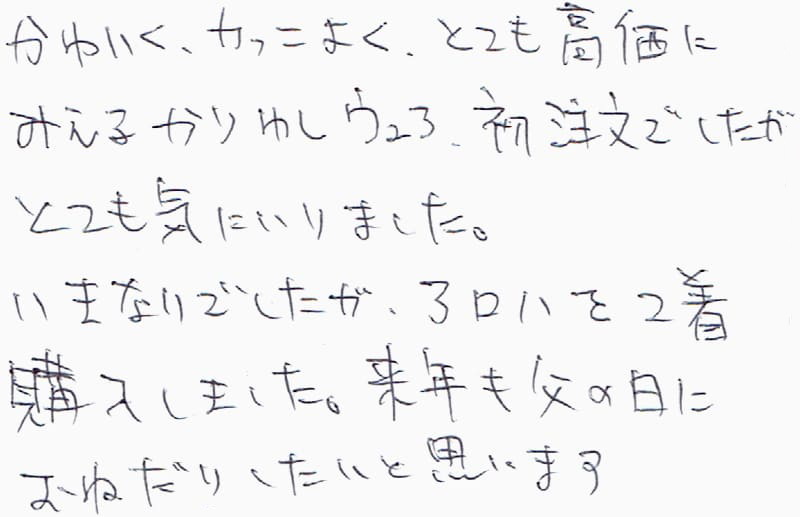 かわいく、カッコよく、とても高価に
みえるかりゆしウェア、初注文でしたが
とても気にいりました。
いきなりでしたが、アロハを2着
購入しました。来年も父の日に
おねだりしたいと思います